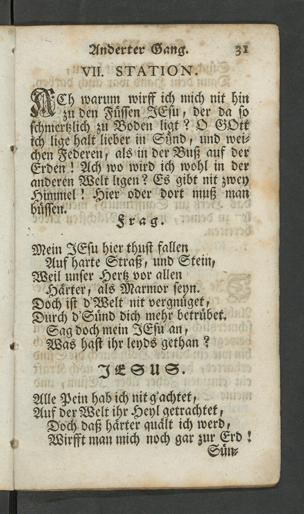 Anderter Gang. 31
VII. STATION.
ACh warum wirff ich mich nit hin
zu den Füssen JEsu, der da so
schmertzlich zu Boden ligt? O GOtt
ich lige halt lieber in Sünd, und wei-
chen Federen, als in der Buß auf der
Erden! Ach wo wird ich wohl in der
anderen Welt ligen? Es gibt nit zwey
Himmel! Hier oder dort muß man
büssen.
Frag.
Mein JEsu hier thust fallen
Auf harte Straß, und Stein,
Weil unser Hertz vor allen
Härter, als Marmor seyn.
Doch ist d'Welt nit vergnüget,
Durch d'Sünd dich mehr betrübet.
Sag doch mein JEsu an,
Was hast ihr leyds gethan?
JESUS.
Alle Pein hab ich nit g'achtet,
Auf der Welt ihr Heyl getrachtet,
Doch daß härter quält ich werd,
Wirfft man mich noch gar zur Erd!
Sün-